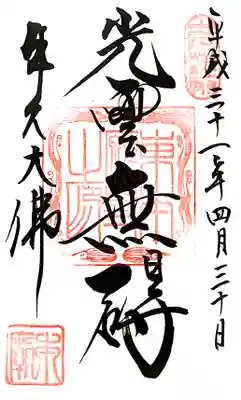 平成三十一年四月三十日
光雲無碍
牛久大佛